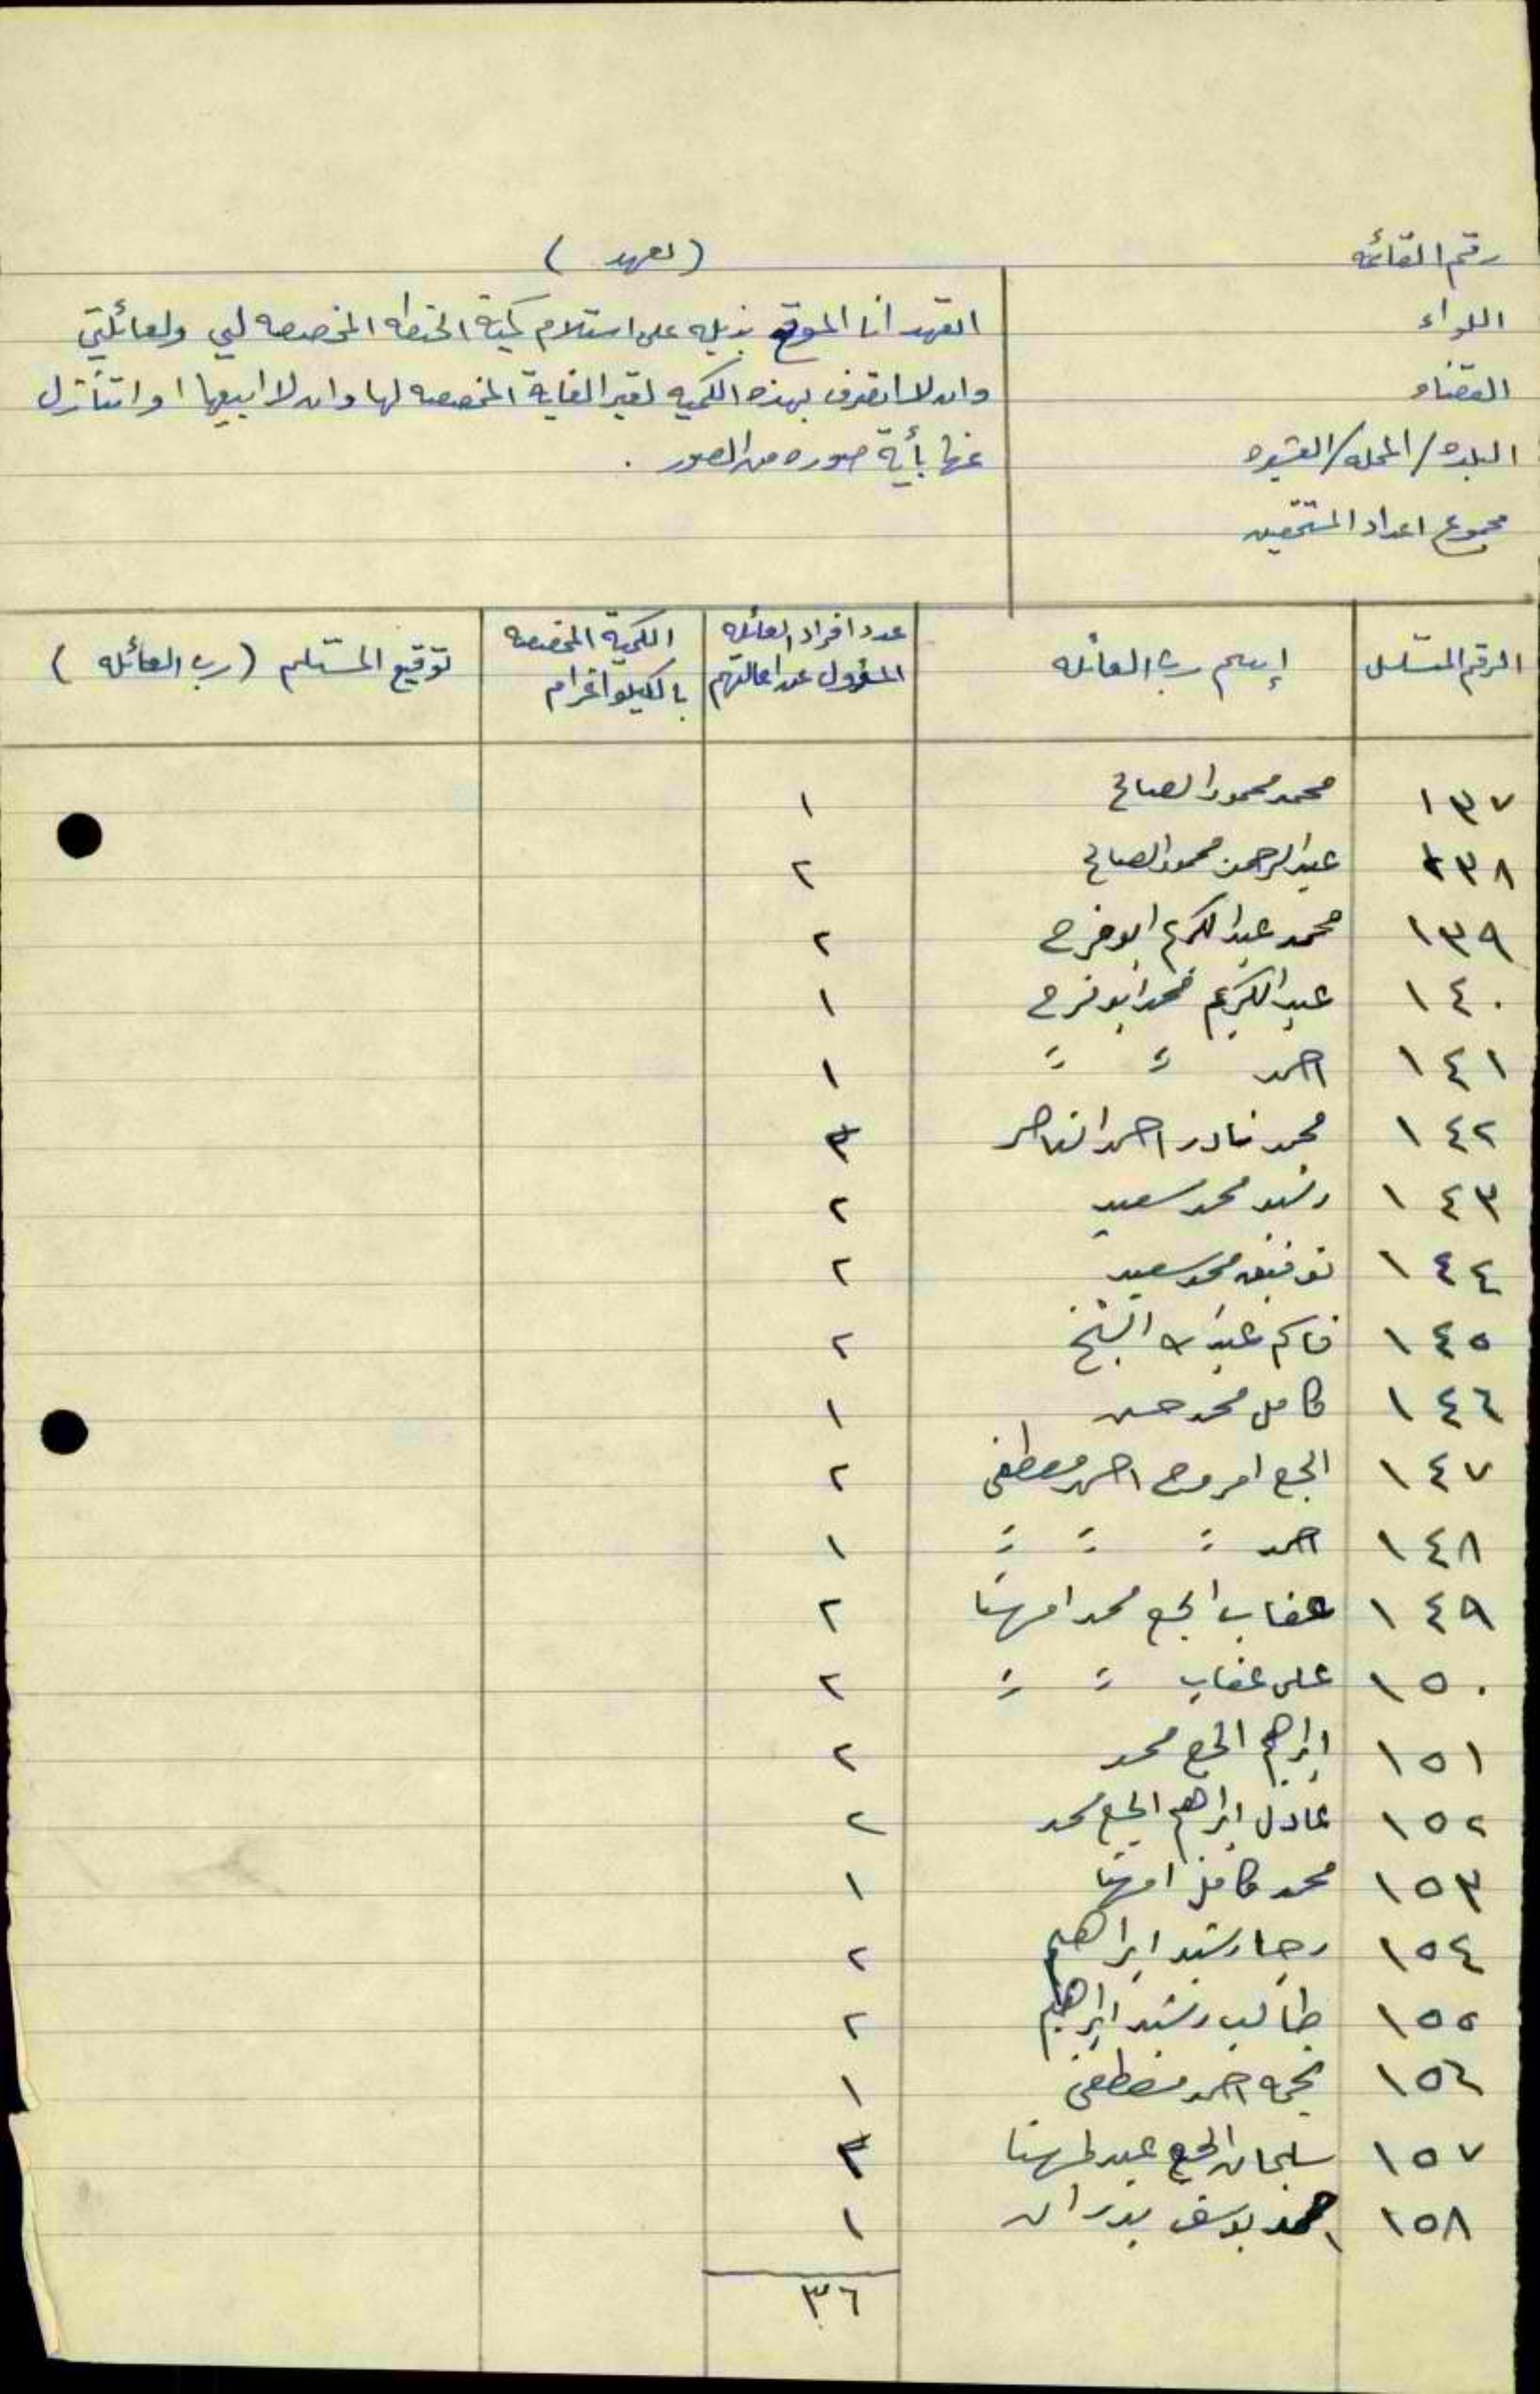 رقم القائمه
اللواء
القضاء
البلده/المحله/العشيره
مجموع اعداد المستحقين
(تعهد)
اتعهد انا الموقع بذيله على استلام كمية الحنطه المخصصه لي ولعائلتي
وان لا اتصرف بهذه الكميه لغير الغاية المخصصه لها وان لا ابيعها او اتنازل
عنها بأية صوره من الصور .
الرقم المتسلسل | إسم رب العائله | عدد افراد العائله المسؤول عن اعالتهم | الكمية المخصصه بالكيلو اغرام | توقيع المستلم (رب العائله)
١٣٧ محمد محمود الصالح ١
١٣٨ عبد الرحمن محمود الصالح ٢
١٣٩ محمد عبد الكريم ابو فرح ٢
١٤٠ عبد الكريم محمد ابو فرح ١
١٤١ احمد " " ١
١٤٢ محمد نادر احمد الناصر ٣
١٤٣ رشيد محمد سعيد ٢
١٤٤ توفيق محمد سعيد ٢
١٤٥ عبد الله الشيخ ٢
١٤٦ كامل محمد حسن ١
١٤٧ الحج احمد مصطفى ٢
١٤٨ احمد " " " ١
١٤٩ عقاب الحج محمد امهنا ٢
١٥٠ على عقاب " " ٢
١٥١ ابراهيم الحج محمد ٢
١٥٢ عادل ابراهيم الحج محمد ٢
١٥٣ محمد كامل امهنا ١
١٥٤ رجا رشيد ابراهيم ٢
١٥٥ طالب رشيد ابراهيم ٢
١٥٦ نجمه احمد مصطفى ١
١٥٧ سليمان الحج عبد المهنا ٣
١٥٨ احمد يوسف بدران ١
٣٦